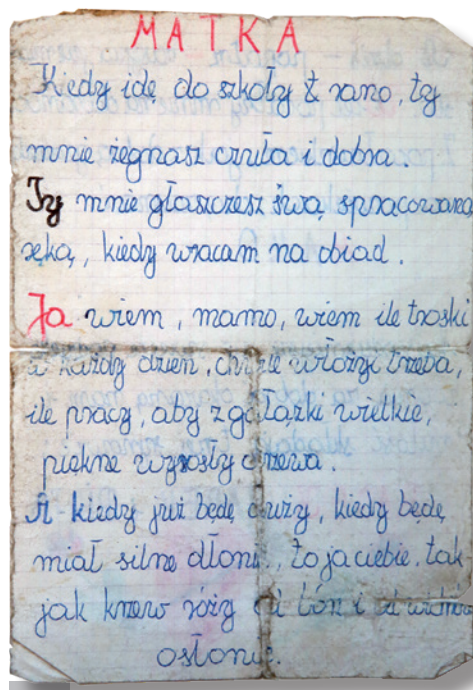 MATKA
Kiedy idę do szkoły z rano, ty
mnie żegnasz czuła i dobra.
Ty mnie głaszczesz swą spracowaną
ręką, kiedy wracam na obiad.
Ja wiem, mamo, wiem ile troski
w każdy dzień, chwile włożyć trzeba,
ile pracy, aby z gałązki wielkie,
piękne wyrosły drzewa.
A - kiedy już będę duży, kiedy będę
miał silne dłonie, to ja ciebie, tak
jak krzew róży od burz i od wichrów
osłonię.